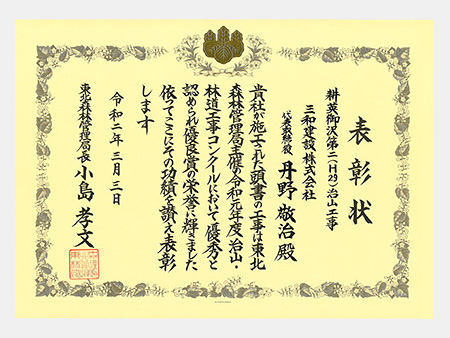 表彰状
耕英御沢第二(H29)治山工事
三和建設株式会社
代表取締役 丹野敬治殿
貴社が施工された頭書の工事は東北
森林管理局主催の令和元年度治山・
林道工事コンクールにおいて優秀と
認められ優良賞の栄誉に輝きました
依つてここにその功績を讃え表彰
します
令和二年三月三日
東北森林管理局長 小島孝文